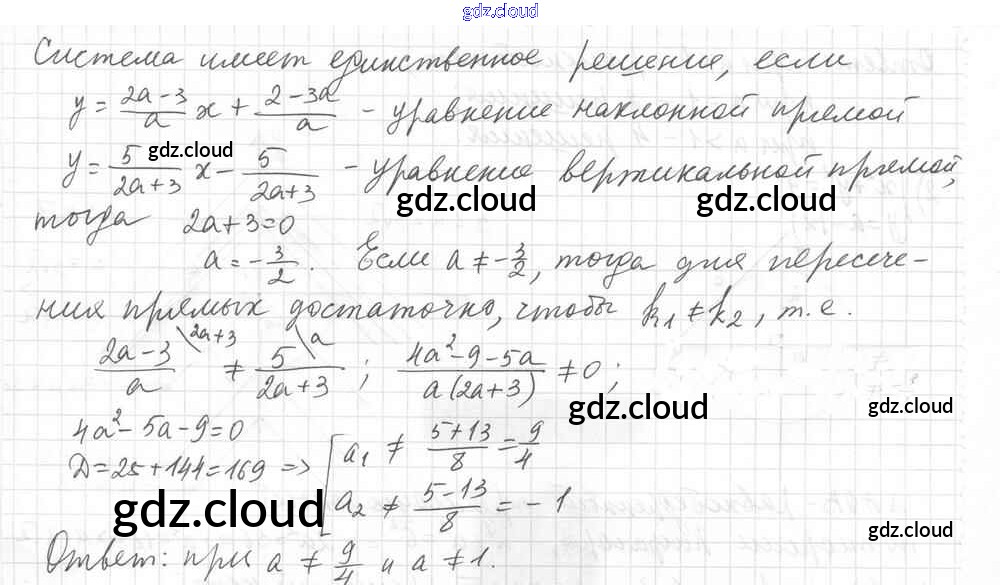 gdz.cloud
gdz.cloud
Система имеет единственное решение, если
y = \frac{2a-3}{a} x + \frac{2-3a}{a} - уравнение наклонной прямой
gdz.cloud
y = \frac{5}{2a+3} x - \frac{5}{2a+3} - уравнение вертикальной прямой,
gdz.cloud gdz.cloud
тогда 2a+3=0
a = -\frac{3}{2}. Если a ≠ -\frac{3}{2}, тогда для пересече-
ния прямых достаточно, чтобы k₁ ≠ k₂, т.е.
\frac{2a-3}{a} \2a+3 ≠ \frac{5}{2a+3} \a ; \frac{4a²-9-5a}{a(2a+3)} ≠ 0;
gdz.cloud gdz.cloud
4a²-5a-9=0
D=25+144=169 => [ a₁ ≠ \frac{5+13}{8} = \frac{9}{4}
a₂ ≠ \frac{5-13}{8} = -1
gdz.cloud
gdz.cloud
Ответ: при a ≠ \frac{9}{4} и a ≠ 1.